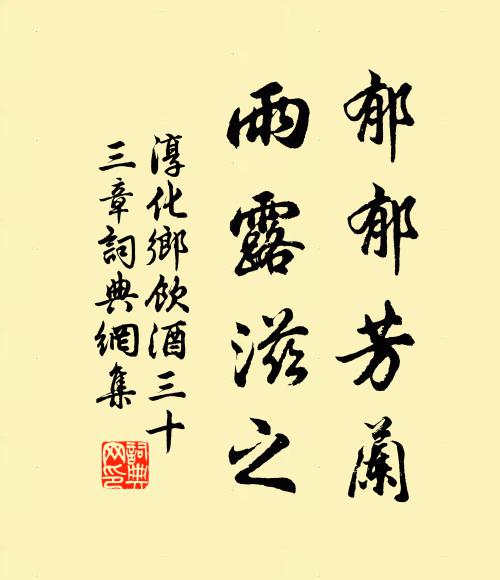 郁郁芳蘭
雨露滋之
淳化鄉飲酒三十
三章詞典網集
詞典
网印